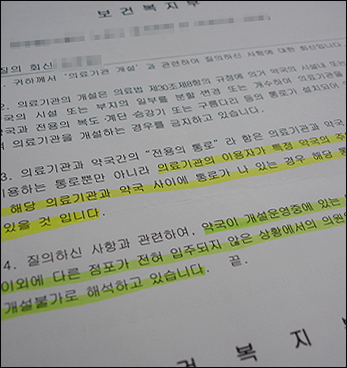 보건복지부
질의 회신
1. 귀하께서 '의료기관 개설'과 관련하여 질의하신 사항에 대한 회신입니다.
2. 의료기관의 개설은 의료법 제30조제8항의 규정에 의거 약국의 시설내 또는
약국의 시설 또는 부지의 일부를 분할 변경 또는 개수하여 의료기관을
약국과 전용의 복도 계단 승강기 또는 구름다리 등의 통로가 설치되어
의료기관을 개설하는 경우를 금지하고 있습니다.
3. 의료기관과 약국간의 "전용의 통로" 라 함은 의료기관과 약국
이용하는 통로뿐만 아니라 의료기관의 이용자가 특정 약국의
해당 의료기관과 약국 사이에 통로가 나 있는 경우 해당
있을 것 입니다.
4. 질의하신 사항과 관련하여, 약국이 개설운영중에 있는
이외에 다른 점포가 전혀 입주되지 않은 상황에서의 의원
개설불가로 해석하고 있습니다. 끝.
건 복 지